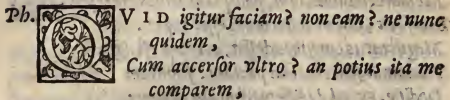 Ph. QVID igitur faciam? non eam? ne nunc
quidem,
Cum accersor vltro? an potius ita me
comparem,